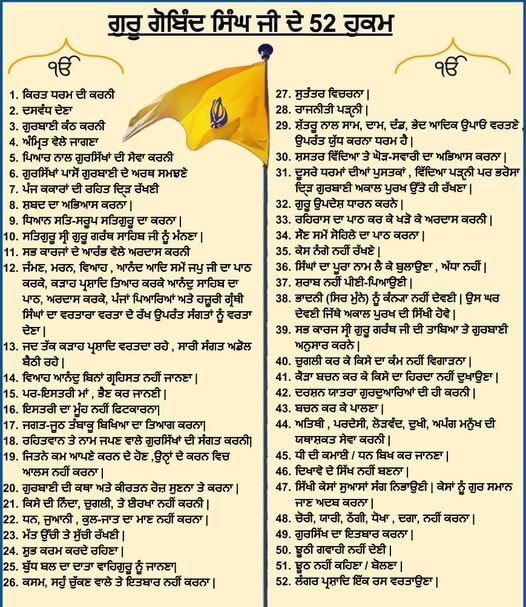 ਗੁਰੂ ਗੋਬਿੰਦ ਸਿੰਘ ਜੀ ਦੇ 52 ਹੁਕਮ
ੴ
ੴ
1. ਕਿਰਤ ਧਰਮ ਦੀ ਕਰਨੀ
2. ਦਸਵੰਧ ਦੇਣਾ
3. ਗੁਰਬਾਣੀ ਕੰਠ ਕਰਨੀ
4. ਅੰਮ੍ਰਿਤ ਵੇਲੇ ਜਾਗਣਾ
5. ਪਿਆਰ ਨਾਲ ਗੁਰਸਿੱਖਾਂ ਦੀ ਸੇਵਾ ਕਰਨੀ
6. ਗੁਰਸਿੱਖਾਂ ਪਾਸੋਂ ਗੁਰਬਾਣੀ ਦੇ ਅਰਥ ਸਮਝਣੇ
7. ਪੰਜ ਕਕਾਰਾਂ ਦੀ ਰਹਿਤ ਦ੍ਰਿੜ ਰੱਖਣੀ
8. ਸ਼ਬਦ ਦਾ ਅਭਿਆਸ ਕਰਨਾ |
9. ਧਿਆਨ ਸਤਿ-ਸਰੂਪ ਸਤਿਗੁਰੂ ਦਾ ਕਰਨਾ |
10. ਸਤਿਗੁਰੂ ਸ੍ਰੀ ਗੁਰੂ ਗਰੰਥ ਸਾਹਿਬ ਜੀ ਨੂੰ ਮੰਨਣਾ |
11. ਸਭ ਕਾਰਜਾਂ ਦੇ ਆਰੰਭ ਵੇਲੇ ਅਰਦਾਸ ਕਰਨੀ
12. ਜੰਮਣ, ਮਰਨ, ਵਿਆਹ , ਆਨੰਦ ਆਦਿ ਸਮੇਂ ਜਪੁ ਜੀ ਦਾ ਪਾਠ
ਕਰਕੇ, ਕੜਾਹ ਪ੍ਰਸ਼ਾਦਿ ਤਿਆਰ ਕਰਕੇ ਆਨੰਦੁ ਸਾਹਬ ਦਾ
ਪਾਠ, ਅਰਦਾਸ ਕਰਕੇ, ਪੰਜਾਂ ਪਿਆਰਿਆਂ ਅਤੇ ਹਜ਼ੂਰੀ ਗ੍ਰੰਥੀ
ਸਿੰਘਾਂ ਦਾ ਵਰਤਾਰਾ ਵਰਤਾ ਦੇ ਰੱਖ ਉਪਰੰਤ ਸੰਗਤਾਂ ਨੂੰ ਵਰਤਾ
ਦੇਣਾ |
13. ਜਦ ਤੱਕ ਕੜਾਹ ਪ੍ਰਸ਼ਾਦਿ ਵਰਤਦਾ ਰਹੇ , ਸਾਰੀ ਸੰਗਤ ਅਡੋਲ
ਬੈਠੀ ਰਹੇ |
14. ਵਿਆਹ ਆਨੰਦੁ ਬਿਨਾਂ ਗ੍ਰਹਿਸਤ ਨਹੀਂ ਜਾਨਣਾ |
15. ਪਰ-ਇਸਤਰੀ ਮਾਂ , ਭੈਣ ਕਰ ਜਾਨਣੀ |
16. ਇਸਤਰੀ ਦਾ ਮੂੰਹ ਨਹੀਂ ਫਿਟਕਾਰਨਾ|
17. ਜਗਤ-ਜੂਠ ਤੰਬਾਕੂ ਬਿਖਿਆ ਦਾ ਤਿਆਗ ਕਰਨਾ|
18. ਰਹਿਤਵਾਨ ਤੇ ਨਾਮ ਜਪਣ ਵਾਲੇ ਗੁਰਸਿੱਖਾਂ ਦੀ ਸੰਗਤ ਕਰਨੀ|
19. ਜਿਤਨੇ ਕਮ ਆਪਣੇ ਕਰਨ ਦੇ ਹੋਣ ,ਉਨ੍ਹਾਂ ਦੇ ਕਰਨ ਵਿਚ
ਆਲਸ ਨਹੀਂ ਕਰਨਾ |
20. ਗੁਰਬਾਣੀ ਦੀ ਕਥਾ ਅਤੇ ਕੀਰਤਨ ਰੋਜ਼ ਸੁਣਨਾ ਤੇ ਕਰਨਾ |
21. ਕਿਸੇ ਦੀ ਨਿੰਦਾ, ਚੁਗਲੀ, ਤੇ ਈਰਖਾ ਨਹੀਂ ਕਰਨੀ |
22. ਧਨ, ਜੁਆਨੀ , ਕੁਲ-ਜਾਤ ਦਾ ਮਾਣ ਨਹੀਂ ਕਰਨਾ |
23. ਮੱਤ ਉੱਚੀ ਤੇ ਸੁੱਚੀ ਰੱਖਣੀ |
24. ਸ਼ੁਭ ਕਰਮ ਕਰਦੇ ਰਹਿਣਾ |
25. ਬੁੱਧ ਬਲ ਦਾ ਦਾਤਾ ਵਾਹਿਗੁਰੂ ਨੂੰ ਜਾਨਣਾ|
26. ਕਸਮ, ਸਹੁੰ ਚੁੱਕਣ ਵਾਲੇ ਤੇ ਇਤਬਾਰ ਨਹੀਂ ਕਰਨਾ |
27. ਸੁਤੰਤਰ ਵਿਚਰਨਾ |
28. ਰਾਜਨੀਤੀ ਪੜ੍ਹਨੀ |
29. ਸ਼ੱਤਰੂ ਨਾਲ ਸਾਮ, ਦਾਮ, ਦੰਡ, ਭੇਦ ਆਦਿਕ ਉਪਾਓ ਵਰਤਣੇ ,
ਉਪਰੰਤ ਯੁੱਧ ਕਰਨਾ ਧਰਮ ਹੈ |
30. ਸ਼ਸਤਰ ਵਿੱਦਿਆ ਤੇ ਘੋੜ-ਸਵਾਰੀ ਦਾ ਅਭਿਆਸ ਕਰਨਾ |
31. ਦੂਸਰੇ ਧਰਮਾਂ ਦੀਆਂ ਪੁਸਤਕਾਂ , ਵਿੱਦਿਆ ਪੜ੍ਹਨੀ ਪਰ ਭਰੋਸਾ
ਦ੍ਰਿੜ ਗੁਰਬਾਣੀ ਅਕਾਲ ਪੁਰਖ ਉੱਤੇ ਹੀ ਰੱਖਣਾ |
32. ਗੁਰੂ ਉਪਦੇਸ਼ ਧਾਰਨ ਕਰਨੇ |
33. ਰਹਿਰਾਸ ਦਾ ਪਾਠ ਕਰ ਕੇ ਖੜੇ ਕੇ ਅਰਦਾਸ ਕਰਨੀ |
34. ਸੌਣ ਸਮੇਂ ਸੋਹਿਲੇ ਦਾ ਪਾਠ ਕਰਨਾ |
35. ਕੇਸ ਨੰਗੇ ਨਹੀਂ ਰੱਖਣੇ |
36. ਸਿੰਘਾਂ ਦਾ ਪੂਰਾ ਨਾਮ ਲੈ ਕੇ ਬੁਲਾਉਣਾ , ਅੱਧਾ ਨਹੀਂ |
37. ਸ਼ਰਾਬ ਨਹੀਂ ਪੀਣੀ-ਪਿਆਉਣੀ |
38. ਭਾਦਨੀ (ਸਿਰ ਮੁੰਨੇ) ਨੂੰ ਕੰਨਿਆ ਨਹੀਂ ਦੇਵਣੀ | ਉਸ ਘਰ
ਦੇਵਣੀ ਜਿੱਥੇ ਅਕਾਲ ਪੁਰਖ ਦੀ ਸਿੱਖੀ ਹੋਵੇ |
39. ਸਭ ਕਾਰਜ ਸ੍ਰੀ ਗੁਰੂ ਗਰੰਥ ਜੀ ਦੀ ਤਾਬਿਆ ਤੇ ਗੁਰਬਾਣੀ
ਅਨੁਸਾਰ ਕਰਨੇ |
40. ਚੁਗਲੀ ਕਰ ਕੇ ਕਿਸੇ ਦਾ ਕੰਮ ਨਹੀਂ ਵਿਗਾੜਨਾ |
41. ਕੌੜਾ ਬਚਨ ਕਰ ਕੇ ਕਿਸੇ ਦਾ ਹਿਰਦਾ ਨਹੀਂ ਦੁਖਾਉਣਾ |
42. ਦਰਸ਼ਨ ਯਾਤਰਾ ਗੁਰਦੁਆਰਿਆਂ ਦੀ ਹੀ ਕਰਨੀ |
43. ਬਚਨ ਕਰ ਕੇ ਪਾਲਣਾ |
44. ਅਤਿਥੀ , ਪਰਦੇਸੀ, ਲੋੜਵੰਦ, ਦੁਖੀ, ਅਪੰਗ ਮਨੁੱਖ ਦੀ
ਯਥਾਸ਼ਕਤ ਸੇਵਾ ਕਰਨੀ |
45. ਧੀ ਦੀ ਕਮਾਈ / ਧਨ ਬਿਖ ਕਰ ਜਾਨਣਾ |
46. ਦਿਖਾਵੇ ਦੇ ਸਿੱਖ ਨਹੀਂ ਬਣਨਾ |
47. ਸਿੱਖੀ ਕੇਸਾਂ ਸੁਆਸਾਂ ਸੰਗ ਨਿਭਾਉਣੀ | ਕੇਸਾਂ ਨੂੰ ਗੁਰ ਸਮਾਨ
ਜਾਣ ਅਦਬ ਕਰਨਾ |
48. ਚੋਰੀ, ਯਾਰੀ, ਠੱਗੀ, ਧੋਖਾ , ਦਗਾ, ਨਹੀਂ ਕਰਨਾ |
49. ਗੁਰਸਿੱਖ ਦਾ ਇਤਬਾਰ ਕਰਨਾ |
50. ਝੂਠੀ ਗਵਾਰੀ ਨਹੀਂ ਦੇਣੀ |
51. ਝੂਠ ਨਹੀਂ ਕਹਿਣਾ / ਬੋਲਣਾ |
52. ਲੰਗਰ ਪ੍ਰਸ਼ਾਦਿ ਇੱਕ ਰਸ ਵਰਤਾਉਣਾ |